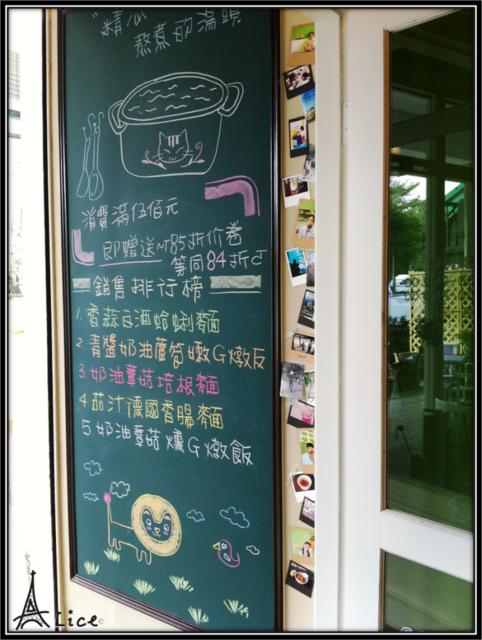 熬煮的湯頭
消費滿伍佰元
即贈送NT85折价卷
等同84折
銷售排行榜
1.香蒜白酒蛤蜊麵
2.青醬奶油蘆筍嫩G燉反
3.奶油蕈菇培根麵
4.茄汁德國香腸麵
5.奶油蕈菇燻G燉飯
Alice